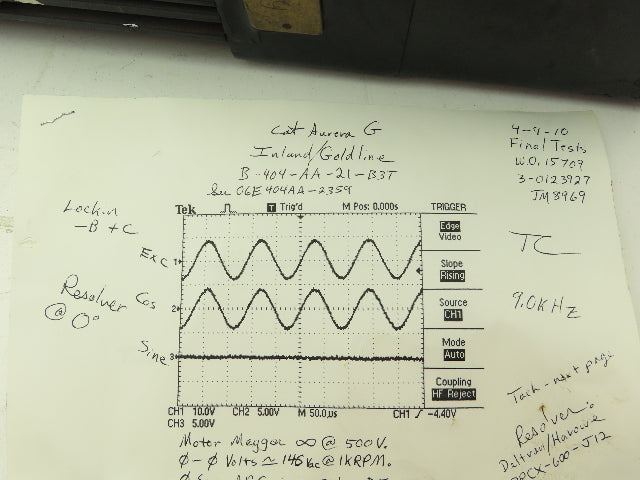 Cat Aurora G
Inland/Goldline
B-404-AA-21-B3T
06E404AA-2359
4-9-10
Final Tests
W.O. 15709
3-0123927
JM8969
Lock in
-B +C
TC
9.0KHz
Resolver
@ 0°
Tek
T Trig'd
M Pos: 0.000s
TRIGGER
Edge
Video
Slope
Rising
Source
CH1
Mode
Auto
Coupling
HF Reject
Exc
1
Cos
2
Sine
3
CH1 10.0V CH2 5.00V M 50.0µs CH1 -4.40V
CH3 5.00V
Tach - next page
Resolver:
Motor Megger ∞ @ 500V.
Ø-Ø Volts ≃ 145Vac @ 1KRPM.